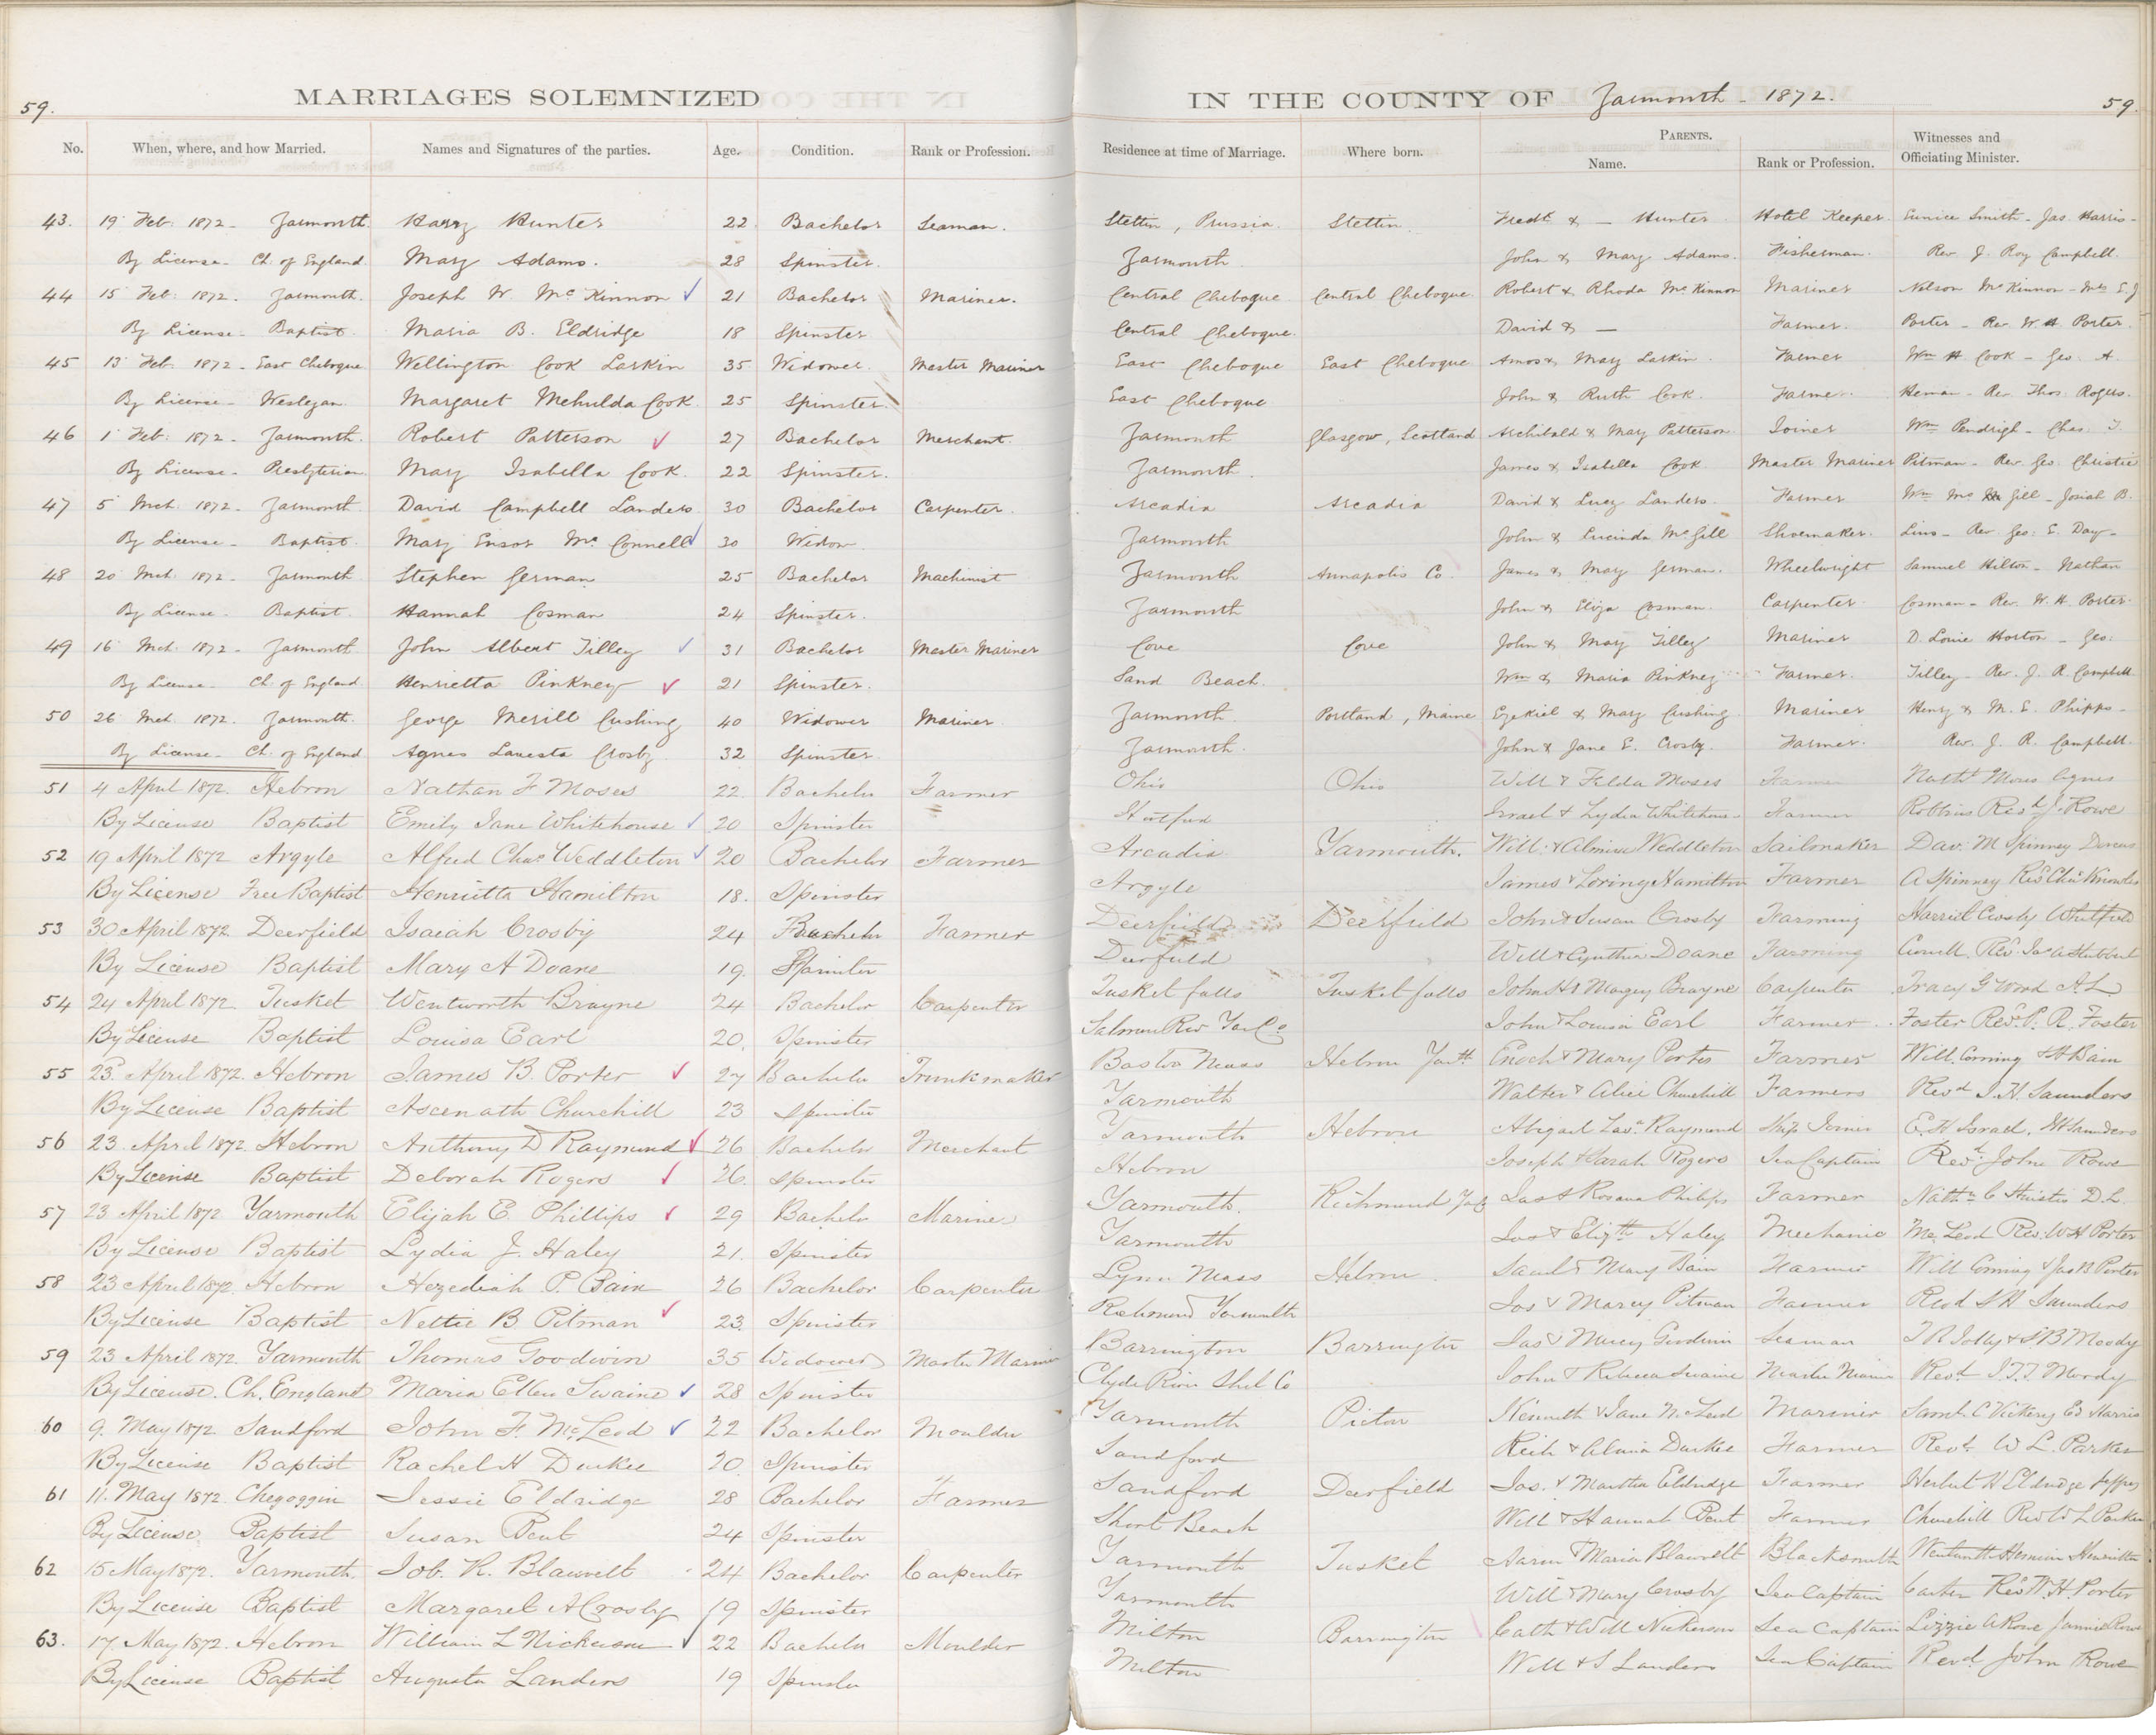 59.
MARRIAGES SOLEMNIZED IN THE COUNTY OF Yarmouth - 1872.
59.
No. When, where, and how Married. Names and Signatures of the parties. Age. Condition. Rank or Profession. Residence at time of Marriage. Where born. PARENTS. Name. Rank or Profession. Witnesses and Officiating Minister.
43. 19 Feb: 1872 - Yarmouth. Harry Hunter 22. Bachelor Seaman. Stettin, Prussia. Stettin. Fredk & — Hunter Hotel Keeper. Eunice Smith - Jas. Harris -
By License - Ch. of England. Mary Adams. 28 Spinster. Yarmouth. John & Mary Adams. Fisherman. Rev. J. Roy Campbell.
44 15 Feb: 1872. Yarmouth. Joseph W. McKinnon 21 Bachelor Mariner. Central Chebogue Central Chebogue. Robert & Rhoda McKinnon Mariner Nelson McKinnon - Mrs E. J
By License - Baptist. Maria B. Eldridge 18 Spinster. Central Chebogue. David & — Farmer. Porter - Rev. W. H. Porter.
45 13 Feb. 1872 - East Chebogue Wellington Cook Larkin 35 Widower. Master Mariner East Chebogue East Chebogue Amos & Mary Larkin. Farmer Wm H Cook - Geo. A.
By License - Wesleyan. Margaret Mehulda Cook. 25 Spinster. East Chebogue John & Ruth Cook. Farmer. Heman - Rev. Thos. Rogers.
46 1 Feb: 1872 - Yarmouth. Robert Patterson 27 Bachelor Merchant. Yarmouth Glasgow, Scotland Archibald & Mary Patterson Joiner Wm Pendrigh - Chas. T.
By License - Presbyterian. Mary Isabella Cook. 22 Spinster. Yarmouth. James & Isabella Cook. Master Mariner Pitman - Rev. Geo. Christie
47 5 Mch. 1872 - Yarmouth David Campbell Landers. 30 Bachelor Carpenter. Arcadia Arcadia David & Lucy Landers. Farmer Wm McGill - Josiah B.
By License - Baptist. Mary Ensor McConnell 30 Widow Yarmouth John & Lucinda McGill Shoemaker. Lins - Rev. Geo: E. Day -
48 20 Mch. 1872 - Yarmouth Stephen German 25 Bachelor Machinist Yarmouth Annapolis Co. James & Mary German. Wheelwright Samuel Hilton - Nathan
By License - Baptist. Hannah Cosman 24 Spinster. Yarmouth John & Eliza Cosman. Carpenter Cosman - Rev. W. H. Porter.
49 16 Mch. 1872 - Yarmouth John Albert Tilley 31 Bachelor Master Mariner Cove Cove John & Mary Tilley Mariner D. Louie Horton - Geo:
By License - Ch. of England Henrietta Pinkney 21 Spinster. Sand Beach. Wm & Maria Pinkney Farmer. Tilley - Rev. J. R. Campbell.
50 26 Mch. 1872. Yarmouth. George Merill Cushing 40 Widower Mariner. Yarmouth. Portland, Maine Ezekiel & Mary Cushing. Mariner Henry & M. E. Phipps -
By License - Ch. of England Agnes Lavesta Crosby. 32 Spinster. Yarmouth. John & Jane E. Crosby. Farmer. Rev. J. R. Campbell.
51 4 April 1872. Hebron Nathan F Moses 22. Bachelor Farmer Ohio Ohio Will & Felda Moses Farmer Agnes
By License Baptist Emily Jane Whitehouse 20 Spinster Israel & Lydia Whitehouse Farmer Robbins Revd J. Rowe
52 19 April 1872 Argyle Alfred Chas Weddleton 20 Bachelor Farmer Arcadia Yarmouth. Will & Almira Weddleton Sailmaker Dav. M Spinney Dorcas
By License Free Baptist Henrietta Hamilton 18. Spinster Argyle James & Loring Hamilton Farmer A Spinney Revd Chas Knowles
53 30 April 1872 Deerfield Isaiah Crosby 24 Bachelor Farmer Deerfield Deerfield John & Susan Crosby Farming Harriet Crosby Whitfield
By License Baptist Mary A Doane 19. Spinster Deerfield Will & Cynthia Doane Farming Revd Jas A Stubbert
54 24 April 1872 Tusket Wentworth Brayne 24 Bachelor Carpenter Tusket falls Tusket falls John H & Margey Brayne Carpenter Tracy G Wood A. L.
By License Baptist Louisa Earl 20. Spinster Salmon Riv Yar Co John & Louisa Earl Farmer Foster Revd P. R. Foster
55 23. April 1872. Hebron James B. Porter 27 Bachelor Trunkmaker Boston Mass Hebron Yarth Enoch & Mary Porter Farmer Will. Corning & H Bain
By License Baptist Ascenath Churchill 23 Spinster Yarmouth Walter & Alice Churchill Farmers Revd J. H. Saunders
56 23. April 1872. Hebron Anthony D Raymond 26 Bachelor Merchant Yarmouth Hebron Abigail Raymond Ship Joiner E. H Israel. Saunders
By License Baptist Deborah Rogers 26. Spinster Hebron Joseph & Sarah Rogers Sea Captain Revd John Rowe
57 23 April 1872 Yarmouth Elijah E. Phillips 29 Bachelor Mariner Yarmouth. Richmond Jas & Rosana Philips Farmer D. L.
By License Baptist Lydia J. Haley 21. Spinster Yarmouth Jos & Elizth Haley Mechanic McLeod Rev. W H Porter
58 23 April 1872. Hebron Hezediah P. Bain 26 Bachelor Carpenter Lynn Mass Hebron Saml & Mary Bain Farmer Will Corning & Jas N Porter
By License Baptist Nettie B. Pitman 23. Spinster Richmond Yarmouth Jos & Marcy Pitman Farmer Revd S H Saunders
59 23 April 1872. Yarmouth Thomas Goodwin 35 Widower Master Mariner Barrington Barrington Jas & Mercy Goodwin Seaman T R Jolly & S B Moody
By License. Ch. England Maria Ellen Swaine 28 Spinster Clyde River Shel Co John & Rebecca Swaine Master Mariner Revd J. T. T. Moody
60 9. May 1872 Sandford John F. McLeod 22 Bachelor Moulder Yarmouth Picton Kenneth & Jane McLeod Mariner Saml. C Vickery Ed Harris
By License Baptist Rachel H Durkee 20. Spinster Sandford & Almira Durkee Farmer Revd W L. Parker
61 11. May 1872. Chegoggin Jessie Eldridge 28 Bachelor Farmer Sandford Deerfield Jas. & Martha Eldridge Farmer Herbert H Eldridge
By License. Baptist Susan Bent 24 Spinster Short Beach Will & Hannah Bent Farmer Churchill Rev W L Parker
62 15 May 1872. Yarmouth. Job. R. Blauvelt 24 Bachelor Carpenter Yarmouth Tusket Aaron & Maria Blauvelt Blacksmith Henrietta
By License Baptist Margaret A Crosby 19 Spinster Yarmouth Will & Mary Crosby Sea Captain Carter Revd W. H. Porter
63. 17. May 1872. Hebron William L Nickerson 22 Bachelor Moulder Milton Barrington Cath & Will Nickerson Sea Captain Lizzie A Rowe Jannie Rowe
By License Baptist Augusta Landers 19 Spinster Milton Will & S Landers Sea Captain Revd. John Rowe